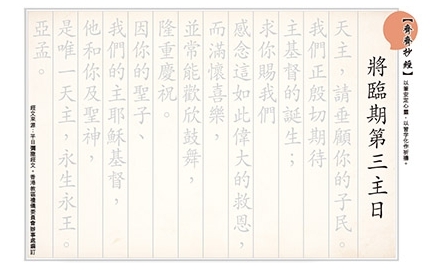 【齊齊抄經】以筆安定心靈，以書字化作祈禱。
將臨期第三主日
天主，請垂顧你的子民。
我們正殷切期待
主基督的誕生；
求你賜我們
感念這如此偉大的救恩，
而滿懷喜樂，
並常能歡欣鼓舞，
隆重慶祝。
因你的聖子、
我們的主耶穌基督，
他和你及聖神，
是唯一天主，永生永王。
亞孟。
經文來源：平日彌撒經文。香港教區禮儀委員會辦事處編訂